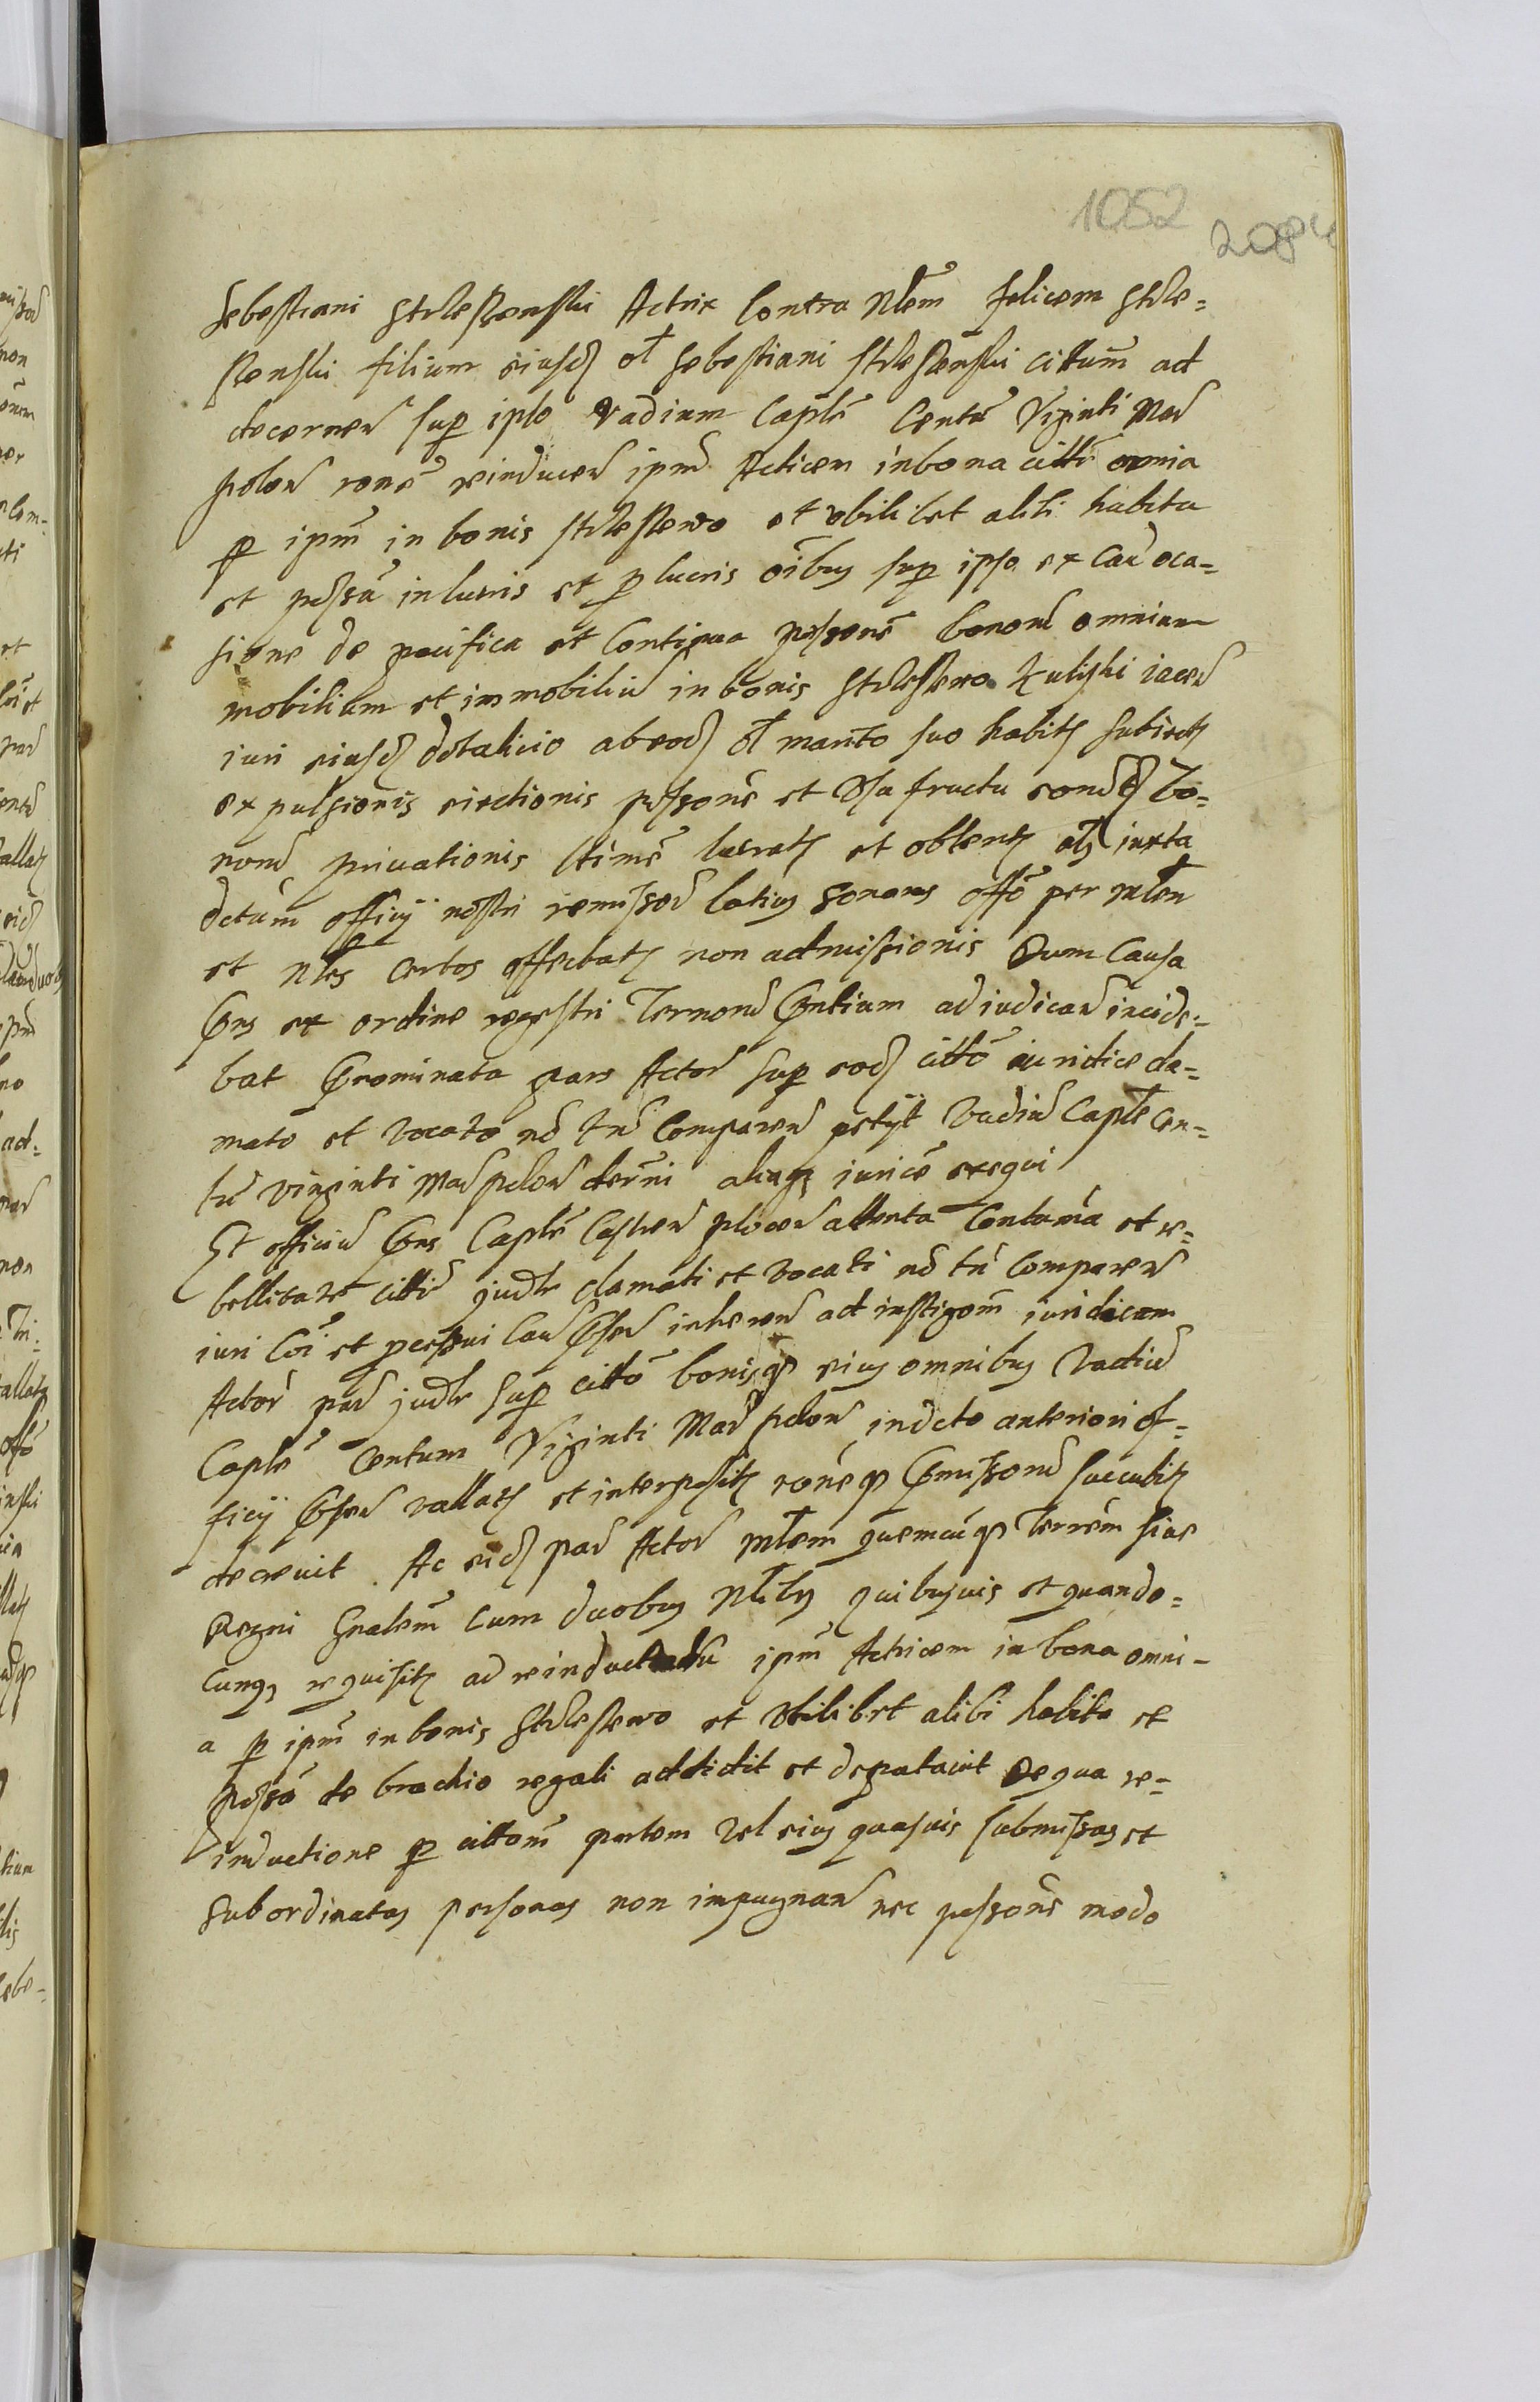 1052
208
Sebestiani Strlessenski Actrix Contra Nlem Felicem Strle=
ssenski filium eiusd ol Sebestiani Strlessenski cittum ad
decernen sup ipso vadium Caple Centu Viginti Mar
polon rone reinducen ipm Actricem in bona citti omnia
p ipm in bonis Strlessewo et ubilibet alibi habita
et possa in lucris et p lucris oibus sup ipso ex Cau oca=
sione de pacifica et Continua possone bonoru omnium
mobilium et immobiliu in bonis Strlessewo Kulighi iacen
iuri eiusd dotalicio ab eod ol marito suo habit subiect
expulsionis eiectionis possone et Usu fructu eorund bo=
norum privationis lucrat et obtent als iuxta
dctum officy nostri remissor latius sonans offo per Mlem
et Nles certos effectat non admissionis Dum Causa
Pns ex ordine regestri Termonu Pntium ad iudican incide=
bat Pnominata pars Actor sup eod citto iuridice cla=
mato et vocato nd tn Comparen petyt Vadiu Caple Cen=
tu viginti Mar polon decerni aliaq iurice exequi
Et officiu Pns Caple Castren plocen attenta Contumcia et re=
bellitate citti judle clamati et vocati nd tn Comparen
iuri Coi et processui Cau Pnsen inheren ad instigom iuridicam
Actor par judle sup citto bonisq eius omnibus Vadiu
Caple Centum Viginti Mar polon in dcto anteriori of=
ficy Pnsen vallat et interposit roneq Pmissoru succubit
decrevit Ac eid par Actor Mlem quemcuq Terrem sive
Regni Gnalem cum duobus Nlibus quibusvis et quando=
cunq requisit ad reinducendu ipm Actricem in bona omni=
a p ipm in bonis Strlessewo et Ubilibet alibi habita et
possa de brachio regali addidit et deputavit De qua re=
inductione p cittom partem vel eius quasvis submissas et
subordinatas personas non impugnan nec possone modo